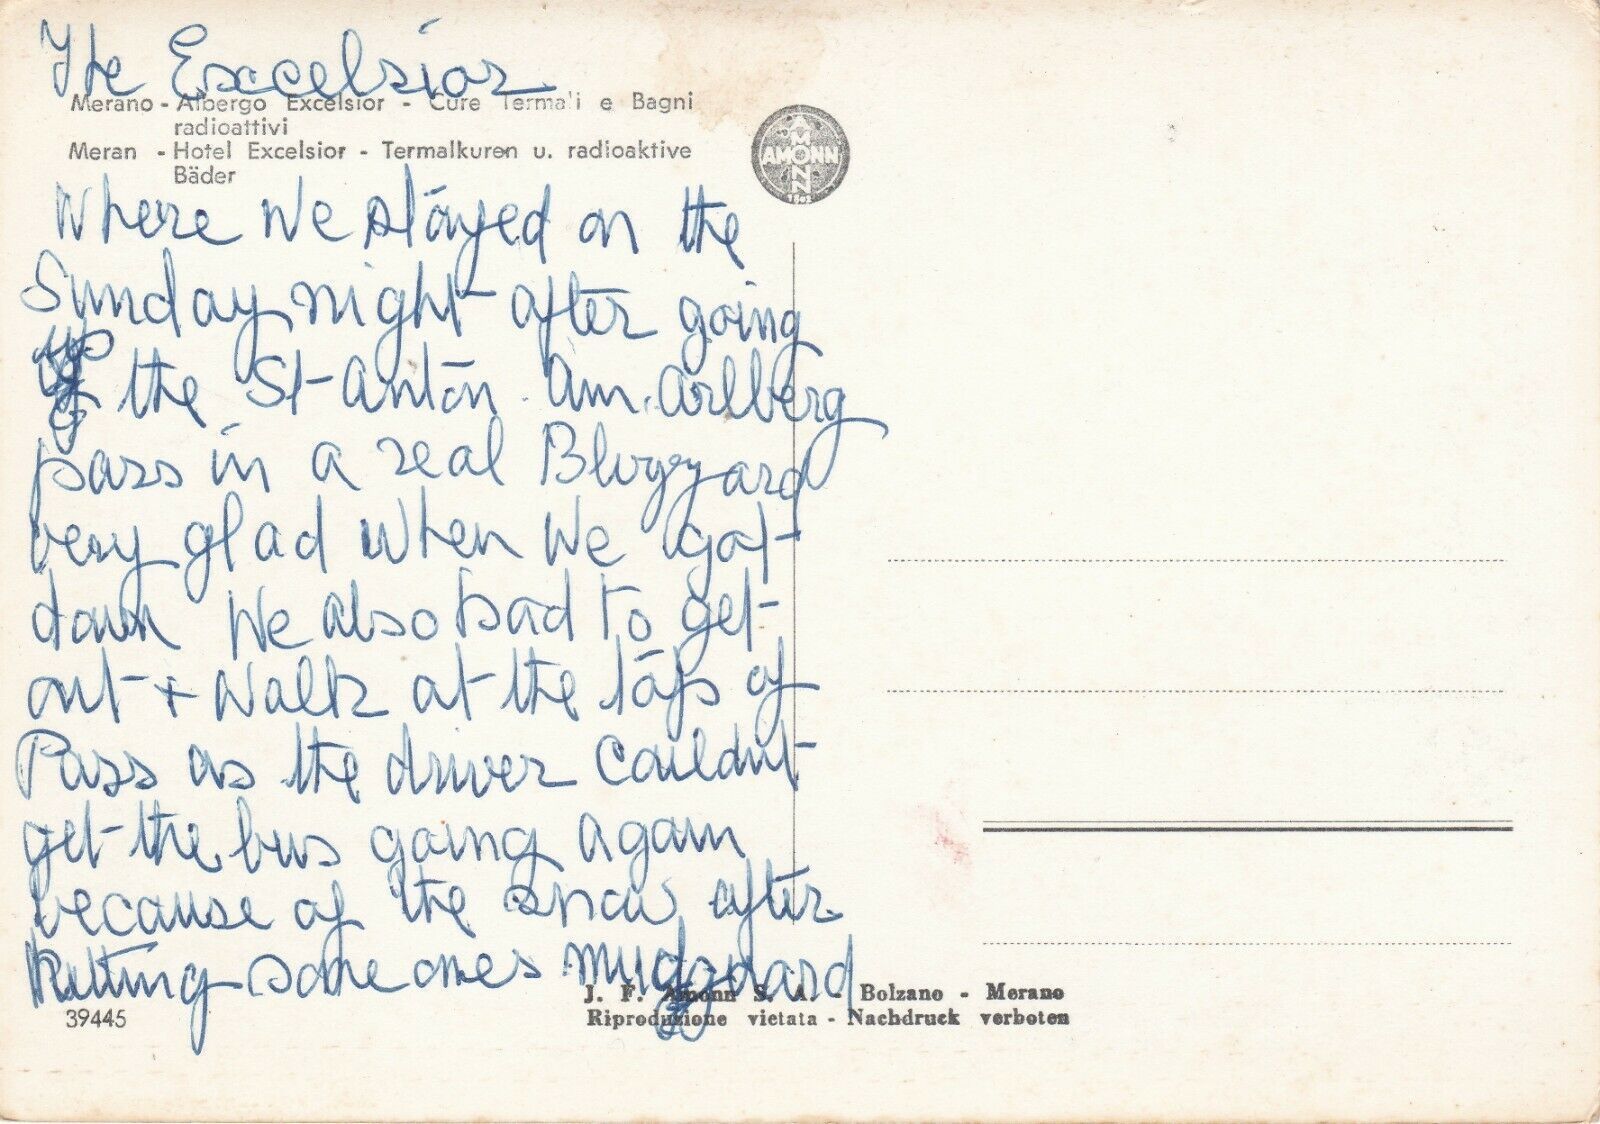 The Excelsior
Merano - Albergo Excelsior - Cure Termali e Bagni
radioattivi
Meran - Hotel Excelsior - Termalkuren u. radioaktive
Bäder
AMONN
AMONN
1802
Where We stayed on the
Sunday night after going
up the St Anton Am. Arlberg
pass in a real Blizzard
very glad when We got
down We also had to get
out + Walk at the tops of
Pass as the driver Couldnt
get the bus going again
because of the snow, after
hitting some ones mudguard
39445
J. F. Amonn S. A. - Bolzano - Merano
Riproduzione vietata - Nachdruck verboten